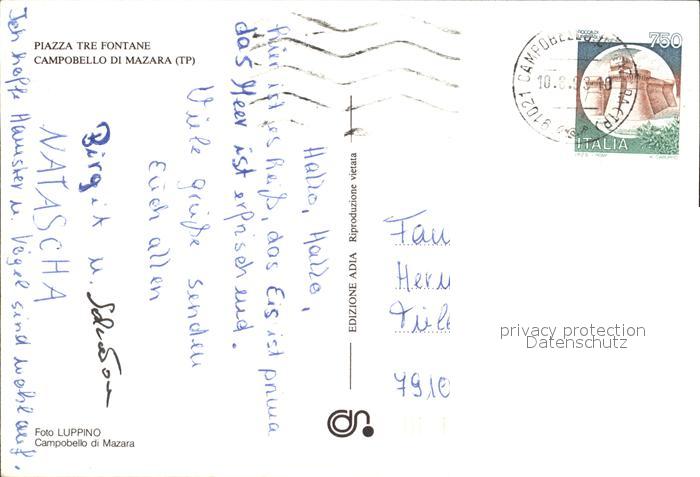 PIAZZA TRE FONTANE
CAMPOBELLO DI MAZARA (TP)
Hallo, Hallo,
hier ist es heiß, das Eis ist prima
das Meer ist erfrischend.
Viele grüße senden
Euch allen
Birgit u.
NATASCHA
Ich hoffe Hamster u. Vögel sind wohlauf.
Foto LUPPINO
Campobello di Mazara
EDIZIONE ADIA Riproduzione vietata
750
ITALIA
91021 CAMPOBELLO
Fam
Herm
7910
privacy protection
Datenschutz